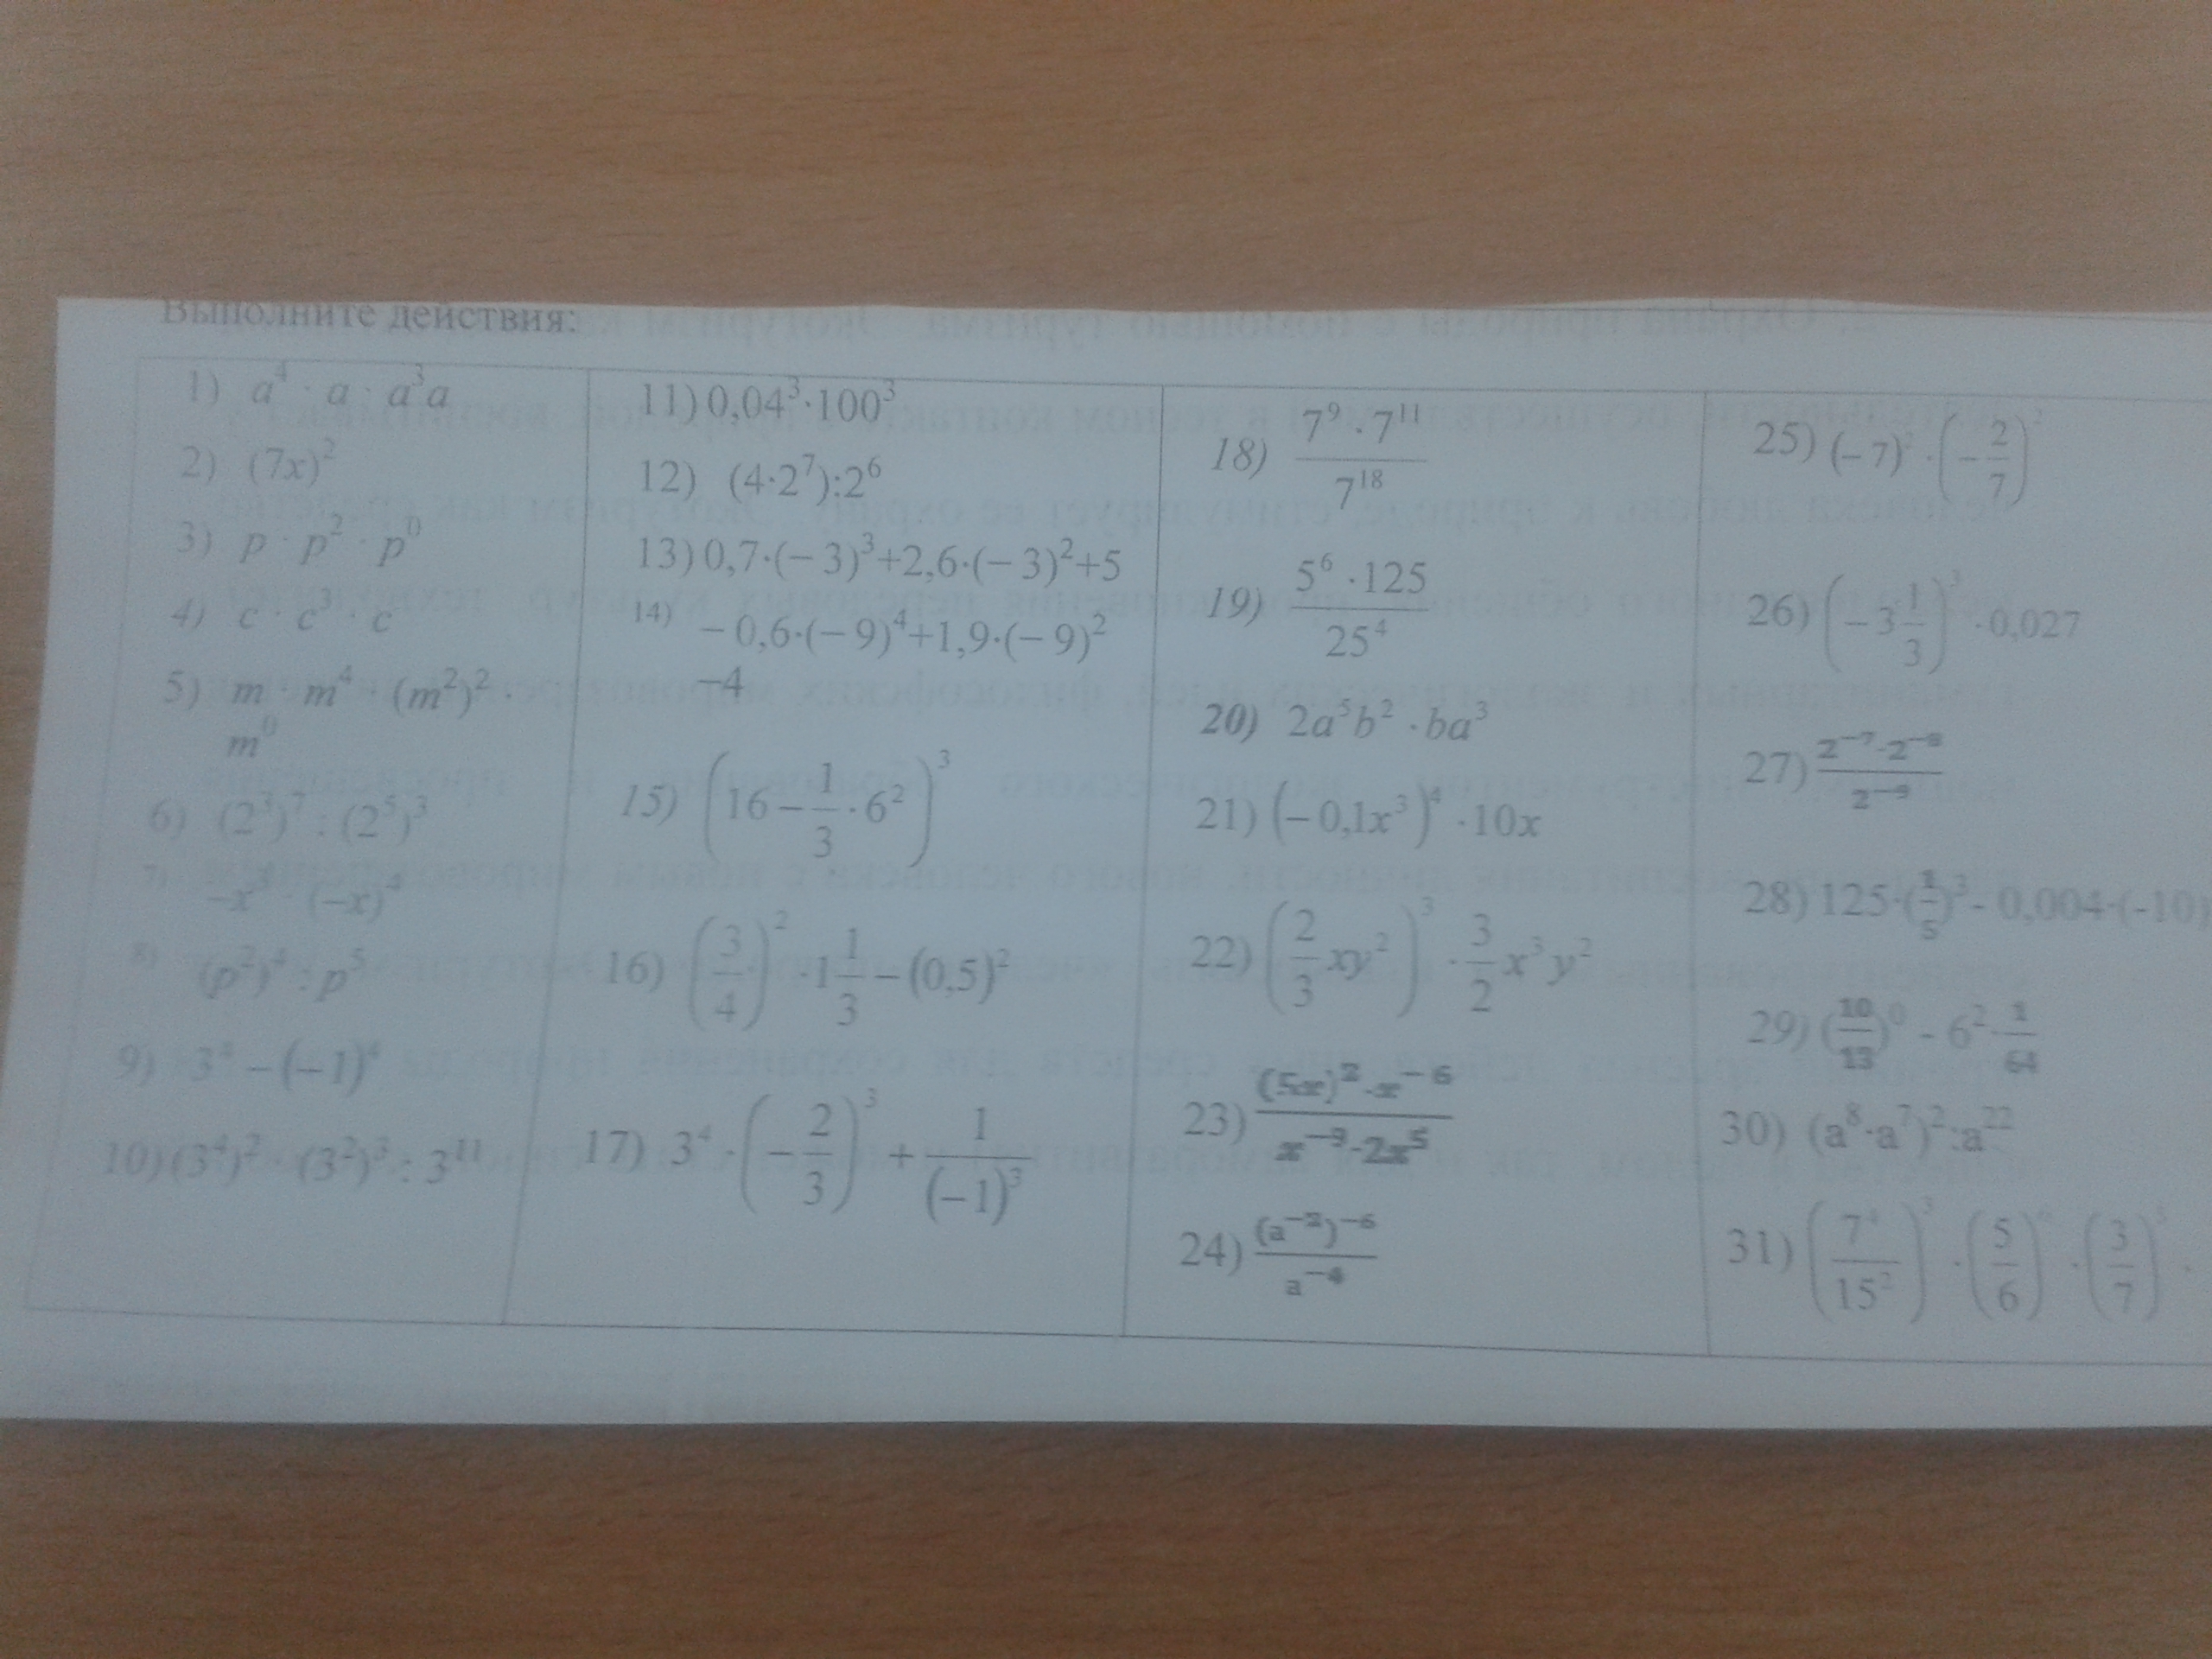 Выполните действия:
1) a⁴ · a · a³a
2) (7x)²
3) p · p² · p⁰
4) c · c³ · c
5) m · m⁴ · (m²)² ·
m⁰
6) (2³)⁷ : (2⁵)³
7) −x³ · (−x)⁴
8) (p²)⁴ : p⁵
9) 3⁴ − (−1)⁴
10) (3⁴)² · (3²)³ : 3¹¹
11) 0,04³·100³
12) (4·2⁷):2⁶
13) 0,7·(−3)³+2,6·(−3)²+5
14) −0,6·(−9)⁴+1,9·(−9)²
−4
15) (16 − 1/3 · 6²)³
16) (3/4)² · 1 1/3 − (0,5)²
17) 3⁴ · (−2/3)³ + 1/(−1)³
18) 7⁹ · 7¹¹ / 7¹⁸
19) 5⁶ · 125 / 25⁴
20) 2a⁵b² · ba³
21) (−0,1x³)⁴ · 10x
22) (2/3 xy²)³ · 3/2 x³y²
23) (5x)²·x⁻⁶ / x⁻⁹·2x⁵
24) (a⁻²)⁻⁶ / a⁻⁴
25) (−7)² · (−2/7)²
26) (−3 1/3)³ · 0,027
27) 2⁻⁷·2⁻⁸ / 2⁻⁹
28) 125·(1/5)³ - 0,004·(-10)
29) (10/13)⁰ - 6²·1/64
30) (a⁸·a⁷)²:a²²
31) (7⁴/15²)³ · (5/6) · (3/7) ·